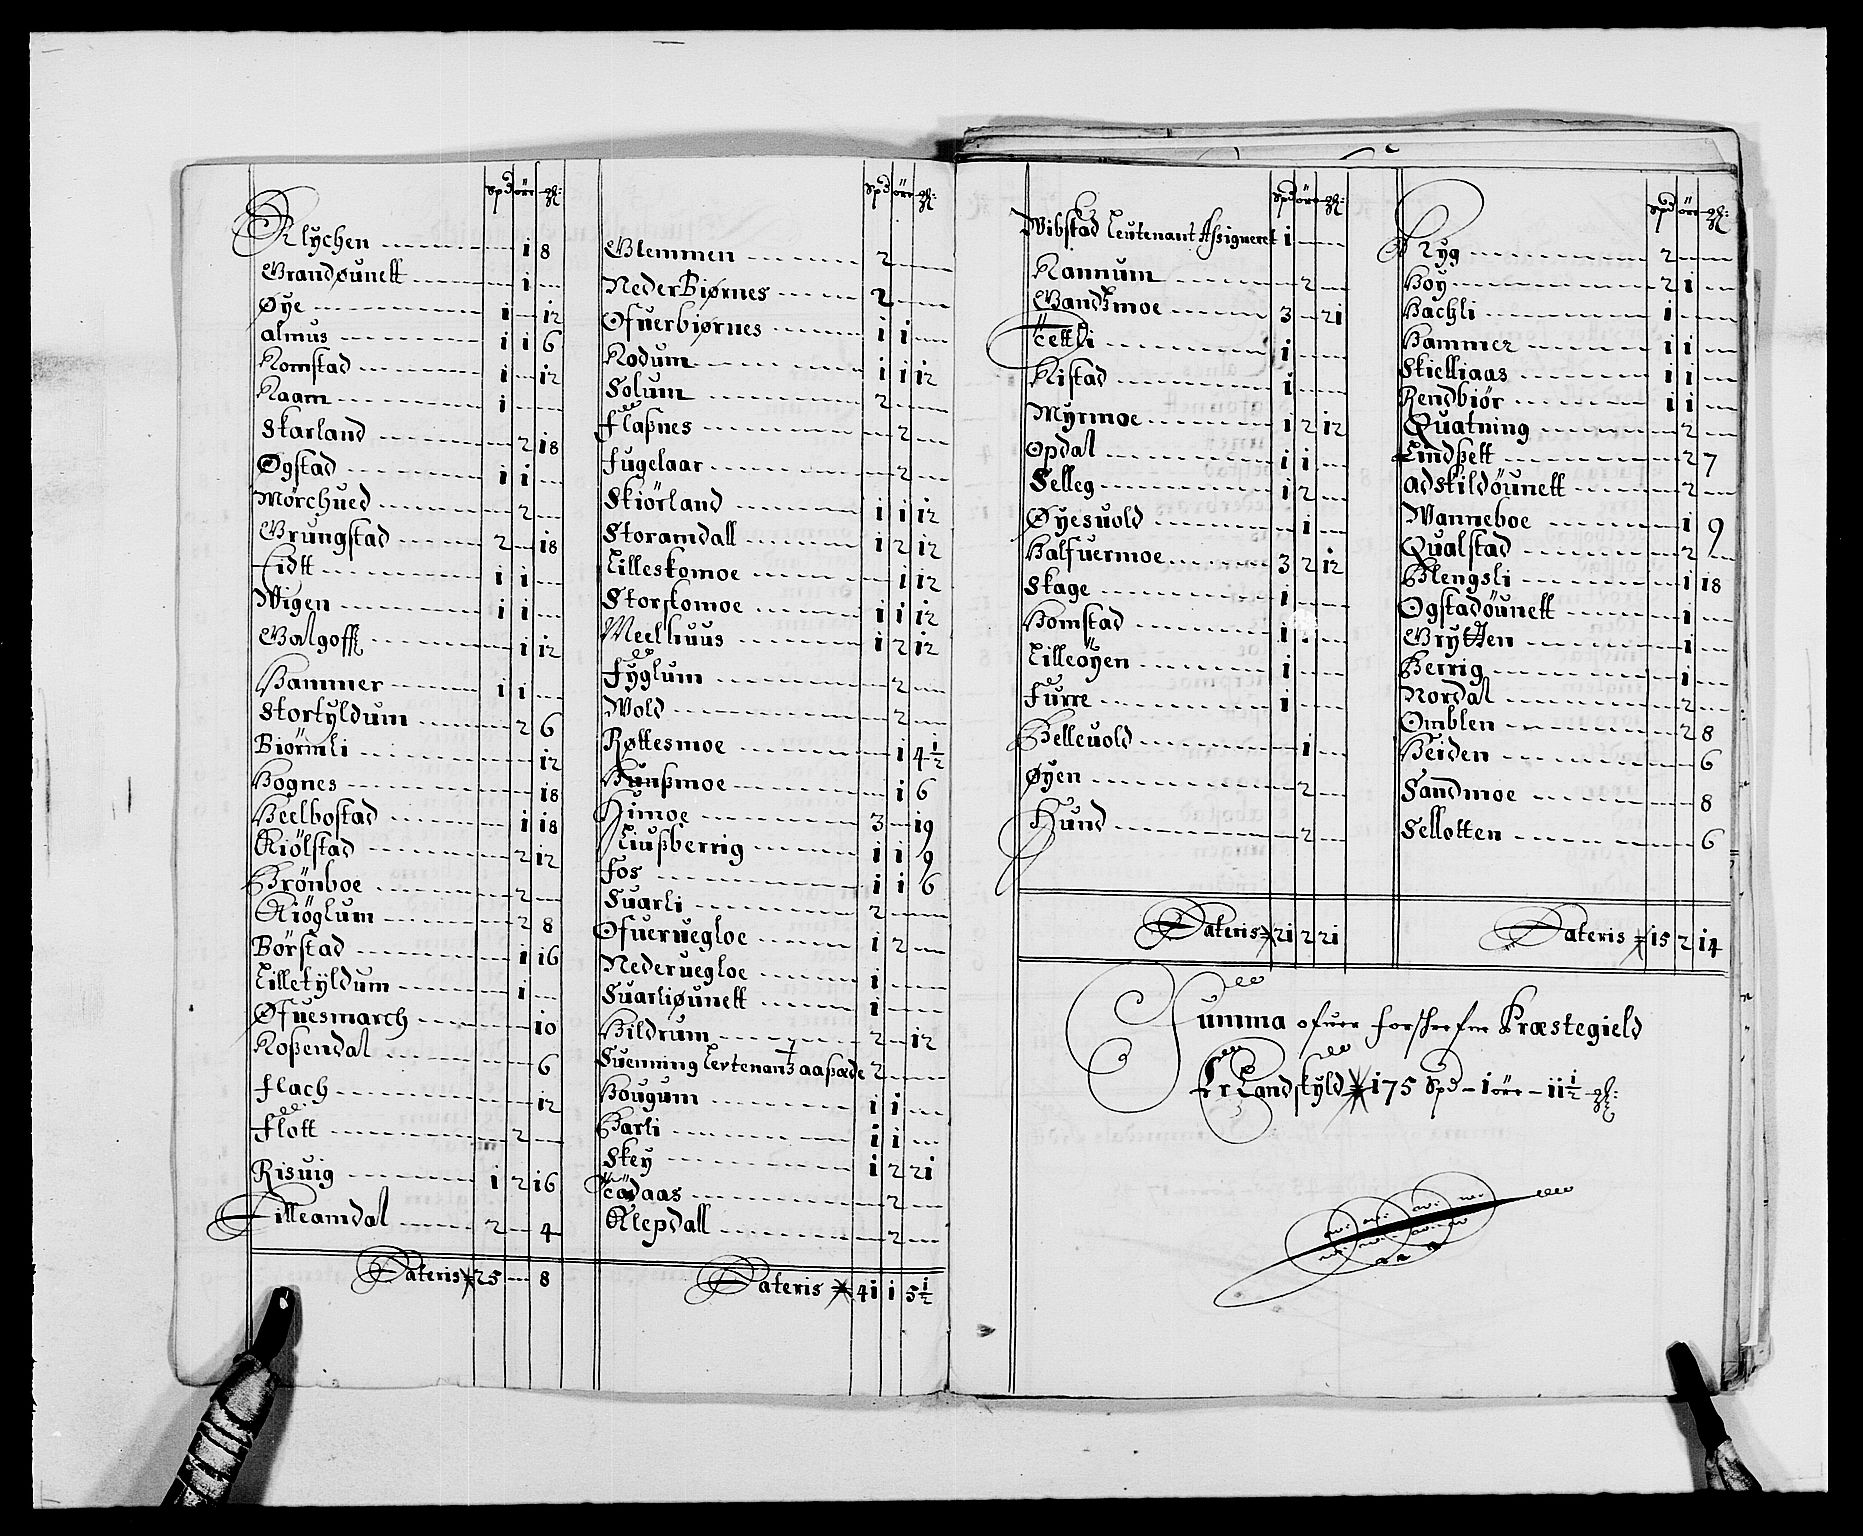 Spd öre gl:
Klychen ------ i 8
Grandøunett ------ i ---
Øye ------ i --- i2
almus ------ i i 6
Komstad ------ i --- i2
Kaam ------ i ------
Skarland ------ 2 i8
Øgstad ------ i i ---
Mörchued ------ 2 ---
Grungstad ------ 2 --- i8
Eidtt ------ i i ---
Wigen ------ i i ---
Galgofft ------ i i2
Hammer ------ i i ---
Stortyldum ------ 2 6
Biörmli ------ i2
Hognes ------ i8
Heelbostad ------ i i8
Kiölstad ------ 2 i2
Brönboe ------ 2 ---
Kiöglum ------ 2 8
Börstad ------ i i6
Lilletyldum ------ i ---
Øfuesmarch ------ i0
Roßendal ------ 6
Flach ------ i2
Flott ------ 2 ---
Risuig ------ i 2 i6
Lilleamdal ------ 2 --- 4
Lateris 25 --- 8
Spd öre gl:
Glemmen ------ 2 ------
NederBiørnes ------ 2 ------
Ofuerbiørnes ------ i i ---
Rodum ------ i i i2
Solum ------ 2 ------
Flaßnes ------ 2 ---
Fugelaar ------ 2 ---
Skiörland ------ i i i2
Storamdall ------ i 2 i2
Lilleskomoe ------ i i2
Storskomoe ------ i i i2
Meelhuus ------ i 2 i2
Fyglum ------ 2 ---
Wold ------ 2 ---
Røttesmoe ------ i 4 1/2
Hunßmoe ------ i 6
Himoe ------ 3 --- i9
Liußberrig ------ i i 9
Fos ------ i i 6
Suarli ------ 2 ------
Ofueruegloe ------ i 2 ---
Nederuegloe ------ i ------
Suarliøunett ------ i ------
Hildrum ------ 2 --- i2
Suenning Levtenant aaßæde 2 ------
Hougum ------ i i ---
Harli ------ i i ---
Skey ------ i 2 2i
aas ------ 2 ---
Klepdall ------ 2 ---
Lateris 4i i 5 1/2
Spd öre gl:
Wibstad Leutenant Aßigneret i ------
Rannum ------ 2 ---
moe ------ 3 --- 2i
i ------
Kistad ------ i ------
Myrmoe ------ i 2 i2
Opdal ------ i i ---
Selleg ------ i 2 ---
Øyesuold ------ i ---
Halfuermoe ------ 3 2 i2
Skage ------ i ------
Homstad ------ i i ---
Lilleöyen ------ i ------
Furre ------ i ------
Helleuold ------ i ---
Øyen ------ 2 ---
Hund ------ 2 ---
Lateris 2i 2 2i
Spd öre gl:
Ryg ------ 2 ------
Hoy ------ 2 i ---
Bachli ------ i ------
Hammer ------ i i ---
Skielliaas ------ i i ---
Rendbiör ------ i i ---
Quatning ------ 2 ---
Lindßett ------ 2 7
adskildöunett ------ 2 ---
Wanneboe ------ i 9
Qualstad ------ 2 ---
Blengsli ------ i i8
Ogstadöunett ------ i ---
Grytten ------ i ---
Berrig ------ i ---
Nordal ------ 2 ---
Omblen ------ 2 8
Heiden ------ 6
Sandmoe ------ 8
Sellotten ------ 6
Lateris i5 2 i4
Summa ofuer forschrefne Præstegield
Er Landskyld i75 Spd - i öre - ii 1/2 gl: